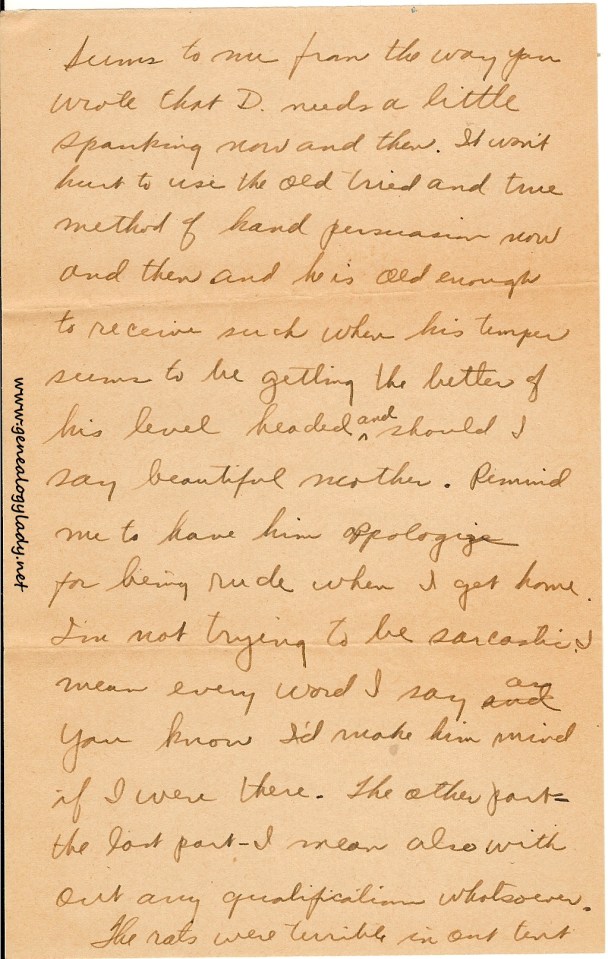 Seems to me from the way you
wrote that D. needs a little
spanking now and then. It won't
hurt to use the old tried and true
method of hand persuasion now
and then and he is old enough
to receive such when his temper
seems to be getting the better of
his level headed and should I
say beautiful mother. Remind
me to have him appologize
for being rude when I get home.
I'm not trying to be sarcastic. I
mean every word I say and
you know I'd make him mind
if I were there. The other part=
the last part-I mean also with
out any qualification whatsoever.
The rats were terrible in out tent
www.genealogylady.net